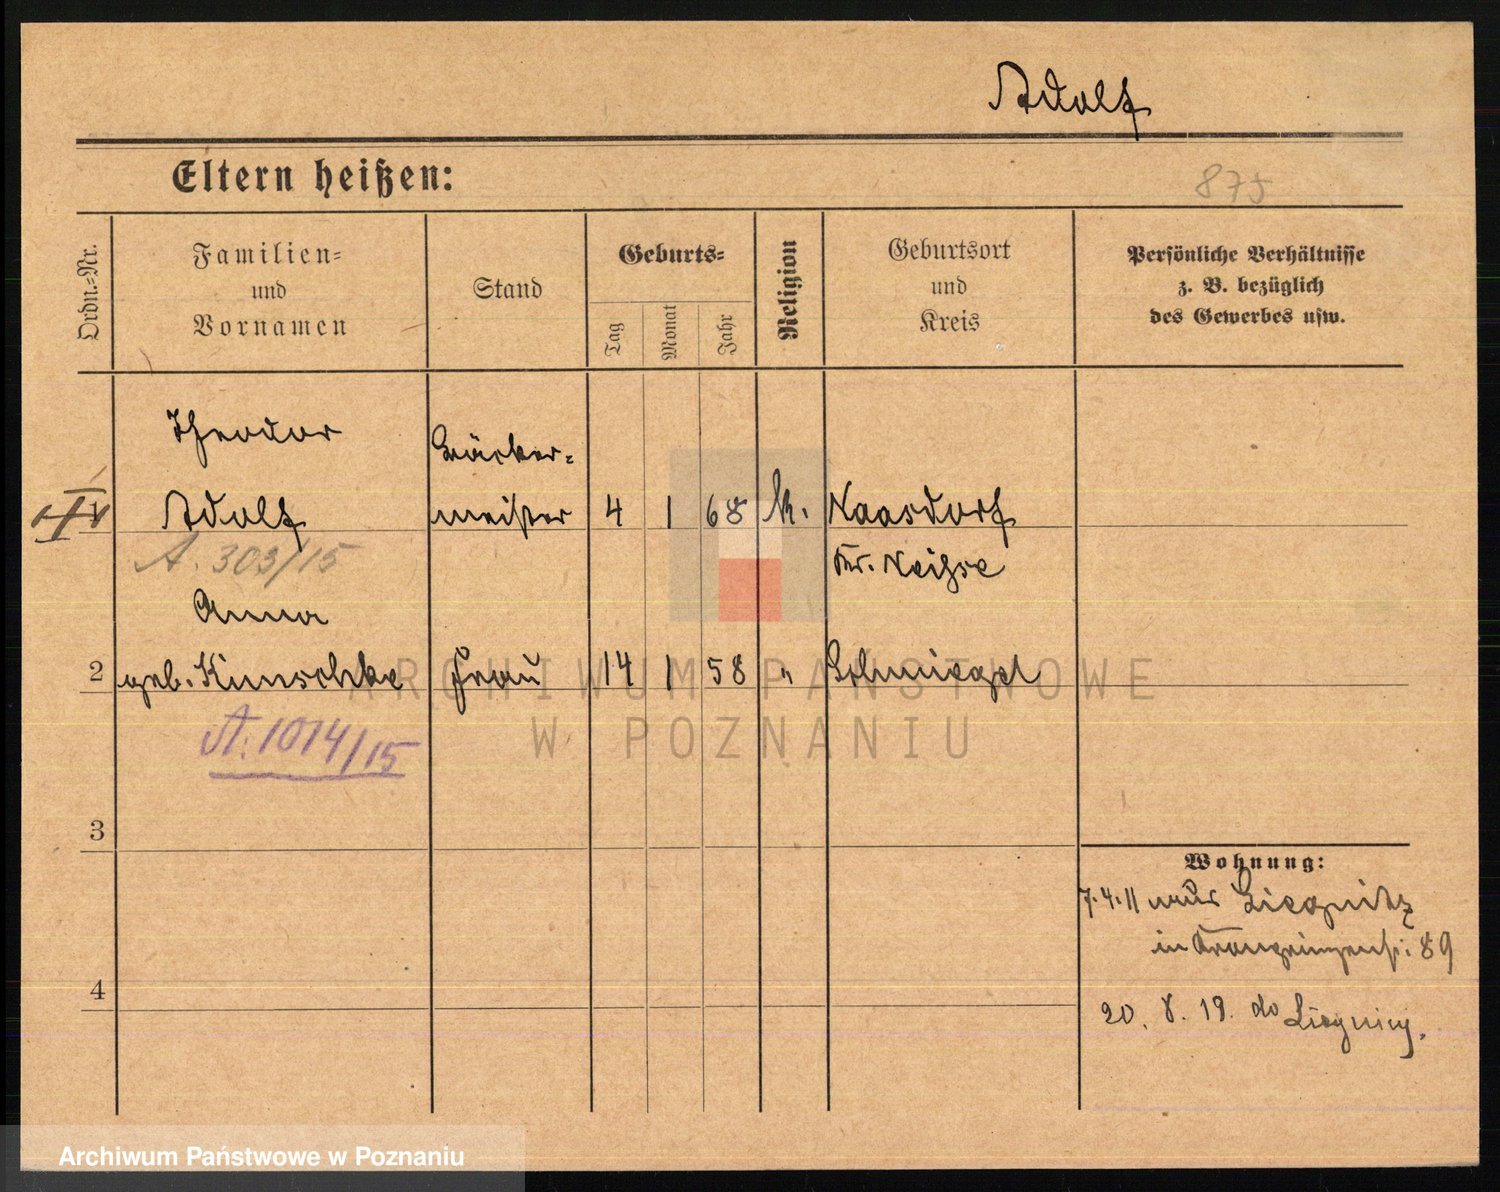 Adolf
Eltern heißen:
875
Ordn.-Nr.
Familien-
und
Vornamen
Stand
Geburts-
Tag
Monat
Jahr
Religion
Geburtsort
und
Kreis
Persönliche Verhältnisse
z. B. bezüglich
des Gewerbes usw.
Theodor
Bäcker-
1 Adolf meister 4 1 68 k. Naasdorf
A. 303/15
Kr. Neisse
Anna
2 geb. Kunschke Frau 14 1 58 " Schmiegel
A. 1014/15
3
Wohnung:
7.4.11 aus Liegnitz
in Kronprinzenst. 89
4
20. 8. 19. do Liegnicy.
ARCHIWUM PAŃSTWOWE
W POZNANIU
Archiwum Państwowe w Poznaniu